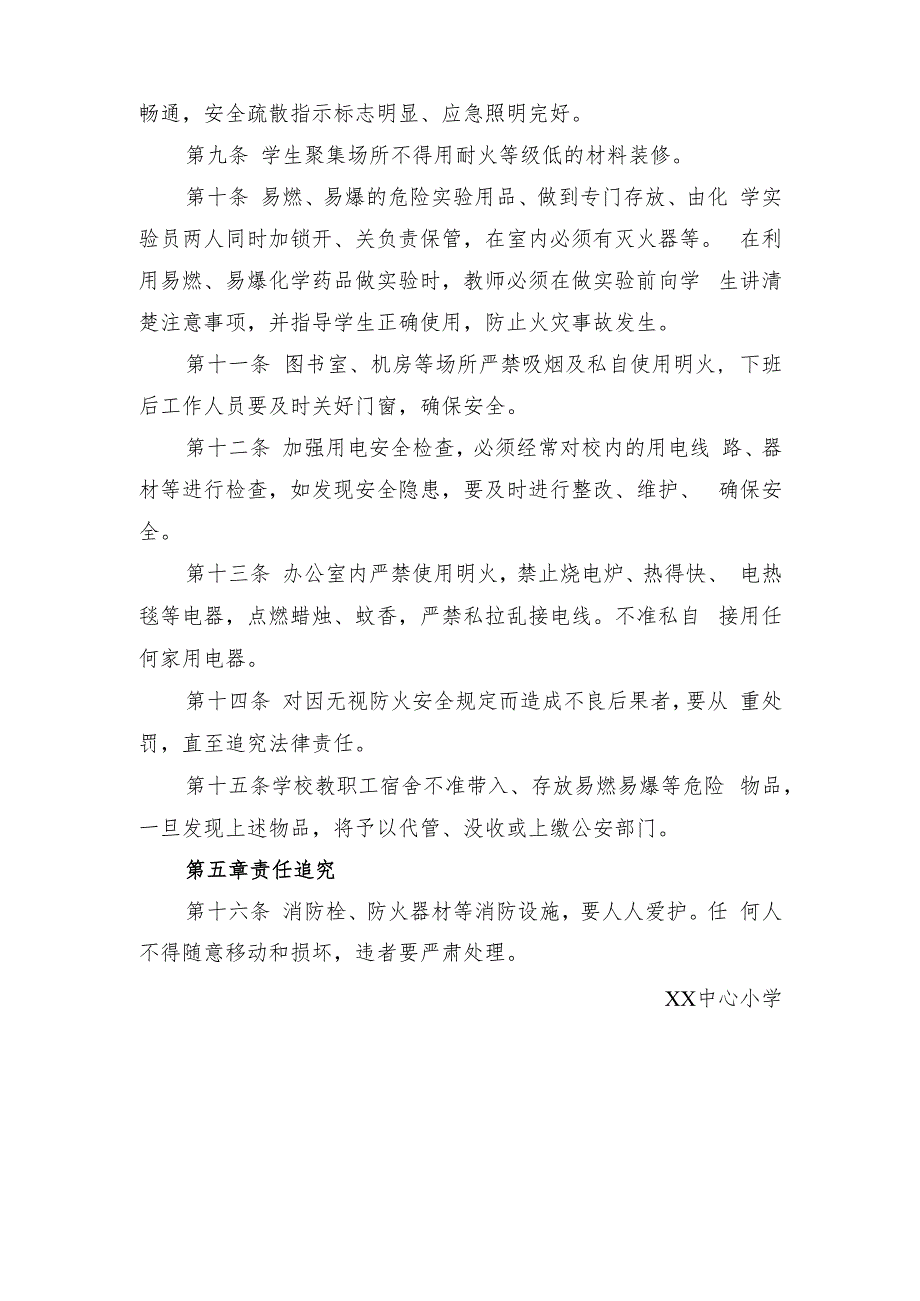 畅通，安全疏散指示标志明显、应急照明完好。
第九条 学生聚集场所不得用耐火等级低的材料装修。
第十条 易燃、易爆的危险实验用品、做到专门存放、由化 学实
验员两人同时加锁开、关负责保管，在室内必须有灭火器等。 在利
用易燃、易爆化学药品做实验时，教师必须在做实验前向学 生讲清
楚注意事项，并指导学生正确使用，防止火灾事故发生。
第十一条 图书室、机房等场所严禁吸烟及私自使用明火, 下班
后工作人员要及时关好门窗，确保安全。
第十二条 加强用电安全检查，必须经常对校内的用电线 路、器
材等进行检查，如发现安全隐患，要及时进行整改、维护、 确保安
全。
第十三条 办公室内严禁使用明火，禁止烧电炉、热得快、 电热
毯等电器，点燃蜡烛、蚊香，严禁私拉乱接电线。不准私自 接用任
何家用电器。
第十四条 对因无视防火安全规定而造成不良后果者，要从 重处
罚，直至追究法律责任。
第十五条学校教职工宿舍不准带入、存放易燃易爆等危险 物品，
一旦发现上述物品，将予以代管、没收或上缴公安部门。
第五章责任追究
第十六条 消防栓、防火器材等消防设施，要人人爱护。任 何人
不得随意移动和损坏，违者要严肃处理。
XX中心小学